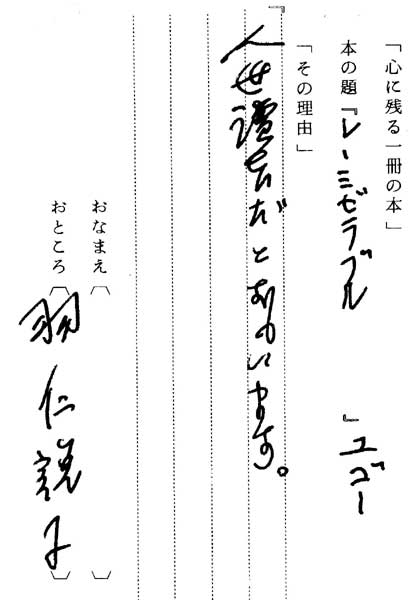 「心に残る一冊の本」
本の題『レーミゼラブル 』ユゴー
「その理由」
人世讀本だとおもいます。
おなまえ
おところ
羽仁説子